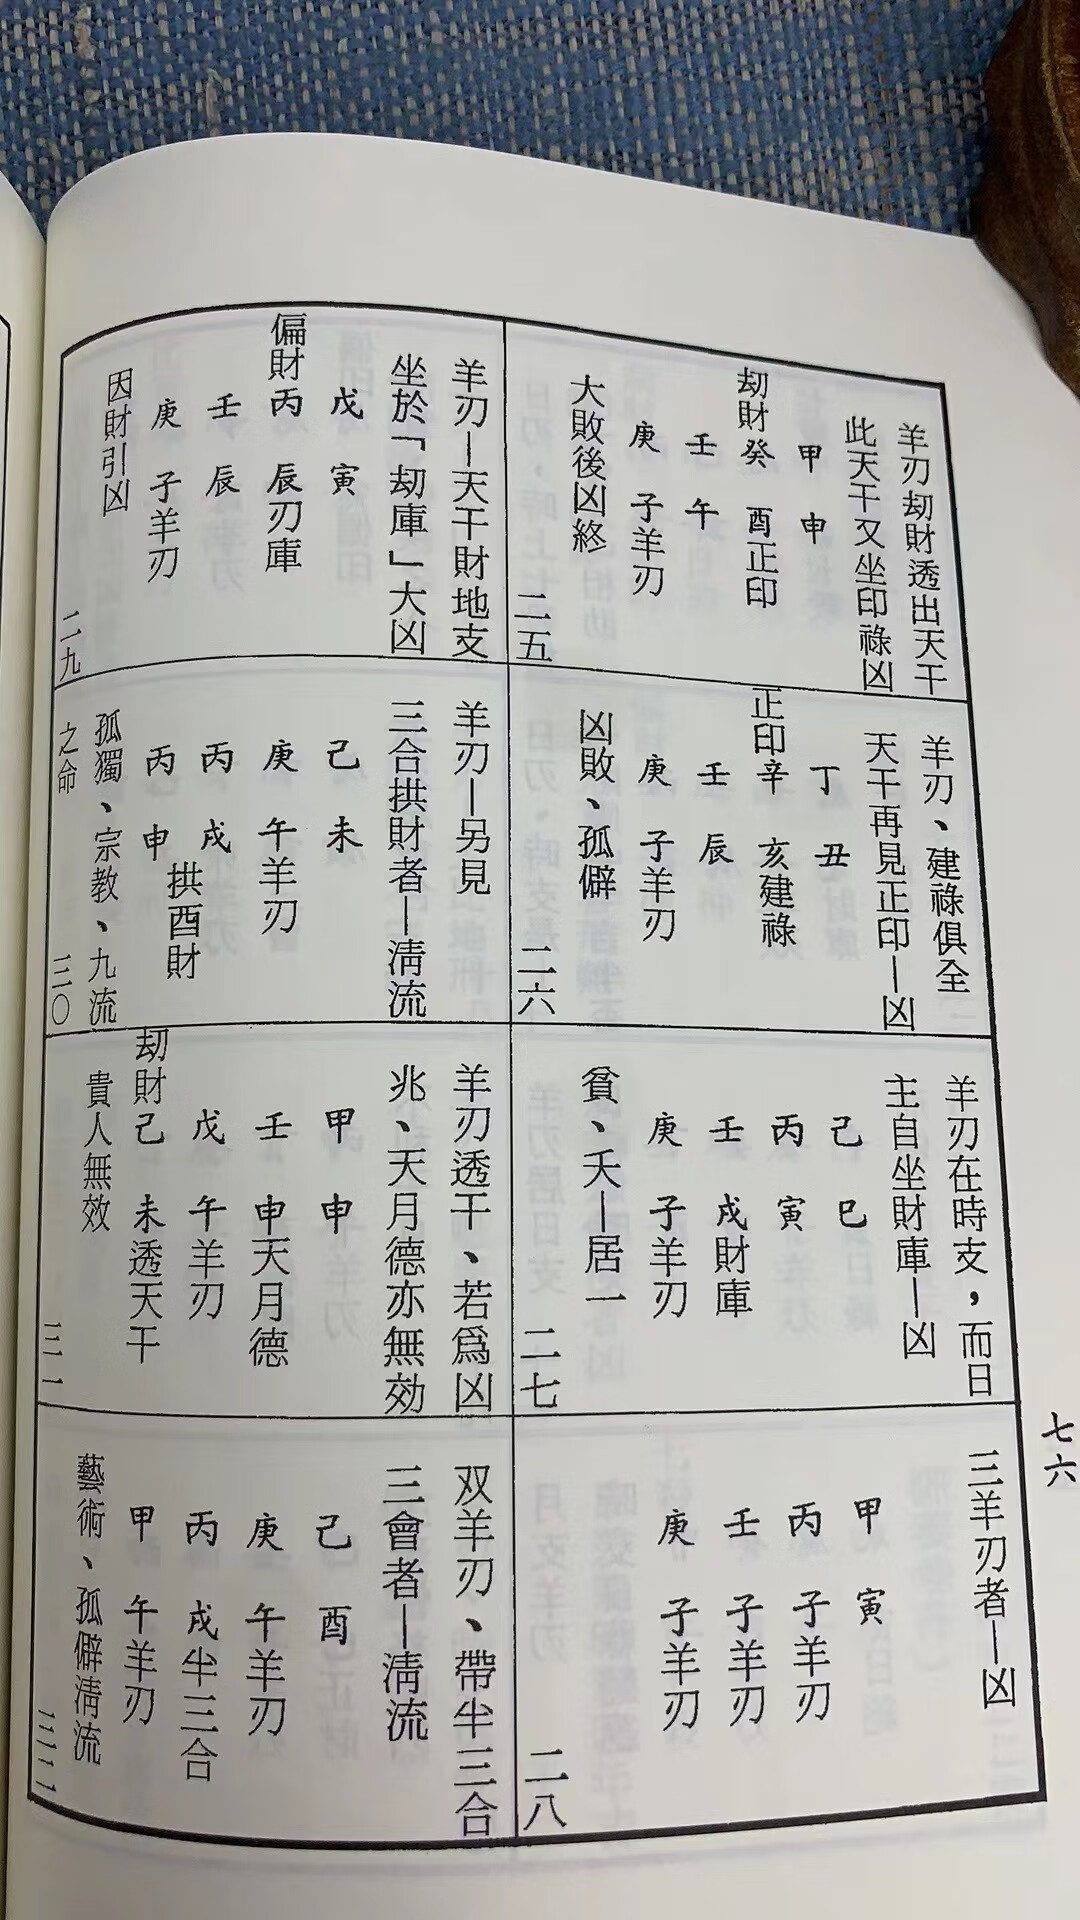 七六
羊刃劫財透出天干
此天干又坐印祿凶
甲申
劫財癸酉正印
壬午
庚子羊刃
大敗後凶終
二五
羊刃、建祿俱全
天干再見正印—凶
丁丑
正印辛亥建祿
壬辰
庚子羊刃
凶敗、孤僻
二六
羊刃在時支，而日
主自坐財庫—凶
己巳
丙寅
壬戌財庫
庚子羊刃
貧、夭—居一
二七
三羊刃者—凶
甲寅
丙子羊刃
壬子羊刃
庚子羊刃
二八
羊刃—天干財地支
坐於「劫庫」大凶
戊寅
偏財丙辰刃庫
壬辰
庚子羊刃
因財引凶
二九
羊刃—另見
三合拱財者—清流
己未
庚午羊刃
丙戌
拱酉財
丙申
孤獨、宗教、九流
之命
三〇
羊刃透干、若爲凶
兆、天月德亦無効
甲申
壬申天月德
戊午羊刃
劫財己未透天干
貴人無效
三一
双羊刃、帶半三合
三會者—清流
己酉
庚午羊刃
丙戌半三合
甲午羊刃
藝術、孤僻清流
三二